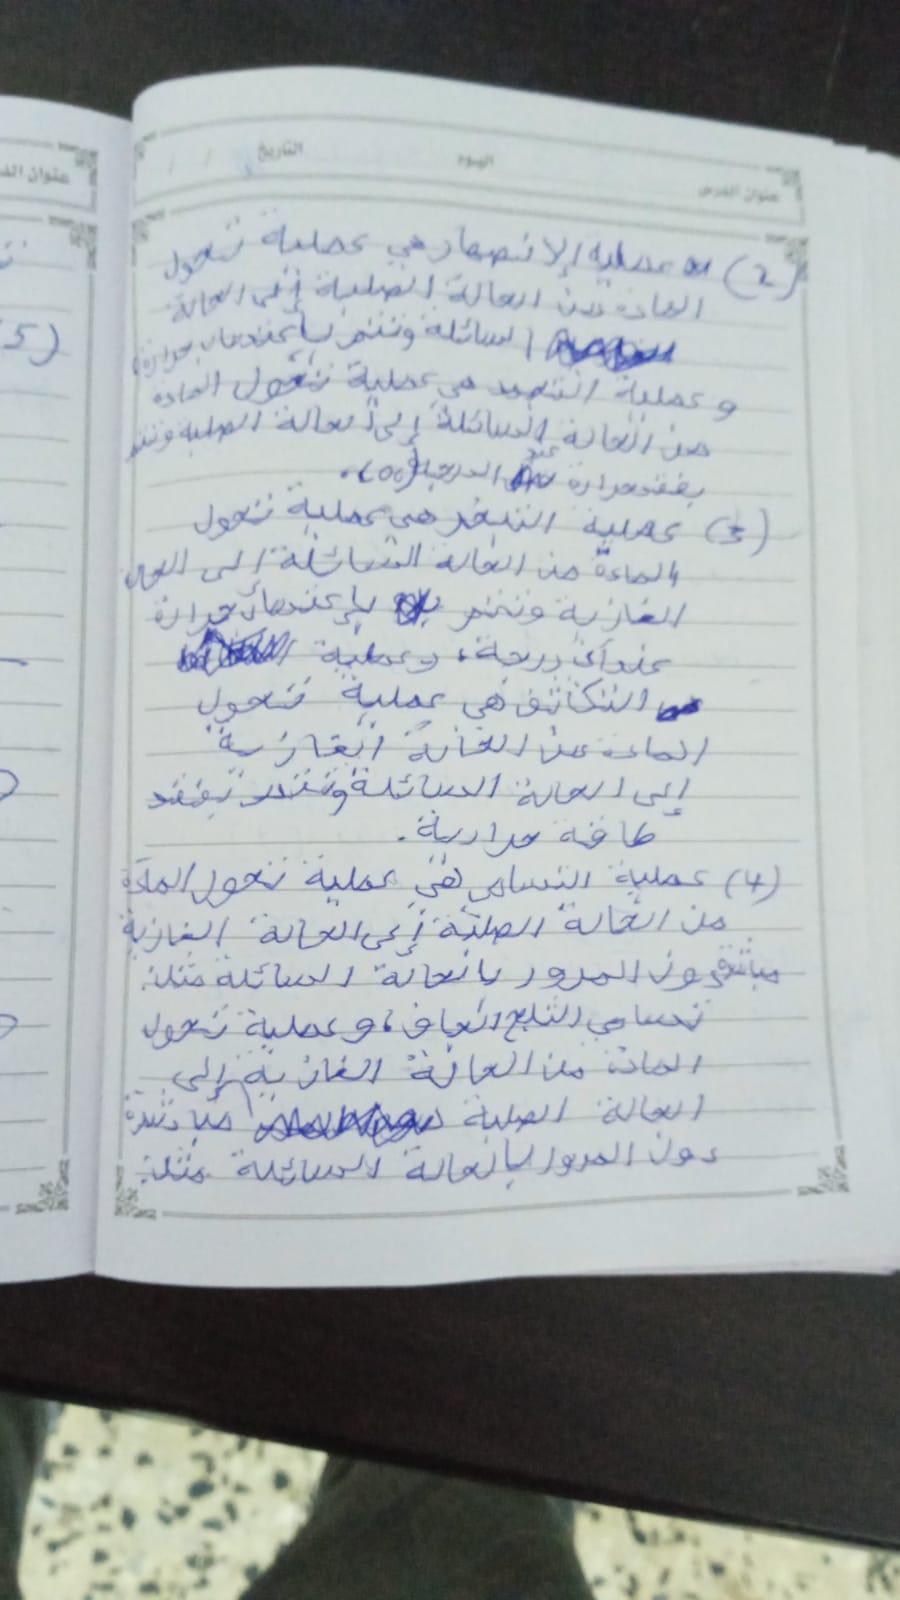 عنوان الدرس اليوم التاريخ / /
(2) عملية الإنصهار هي عملية تحول
المادة من الحالة الصلبة إلى الحالة
السائلة وتتم بإعتصاص حرارة،
و عملية التجمد هي عملية تحول المادة
من الحالة السائلة إلى الحالة الصلبة وتتم
بفقد حرارة عند الدرجة (00).
(3) عملية التبخر هي عملية تحول
المادة من الحالة السائلة إلى الحالة
الغازية وتتم بإعتصاص حرارة
عند أي درجة، وعملية
التكاثف هي عملية تحول
المادة من الحالة الغازية
إلى الحالة السائلة وتتم بفقد
طاقة حرارية.
(4) عملية التسامي هي عملية تحول المادة
من الحالة الصلبة إلى الحالة الغازية
مباشرة دون المرور بالحالة السائلة مثل:
تسامي الثلج الجاف، و عملية تحول
المادة من الحالة الغازية إلى
الحالة الصلبة مباشرة
دون المرور بالحالة السائلة مثل:
عنوان الد
(5)